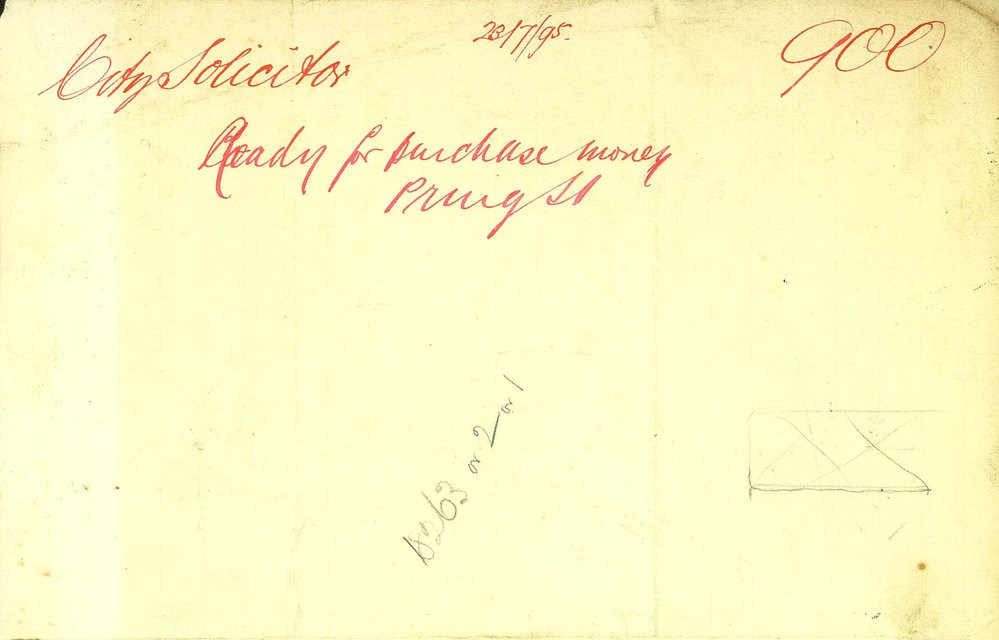 City Solicitor
23/7/95.
900
Ready for purchase money
Pring St
or 2 or 1